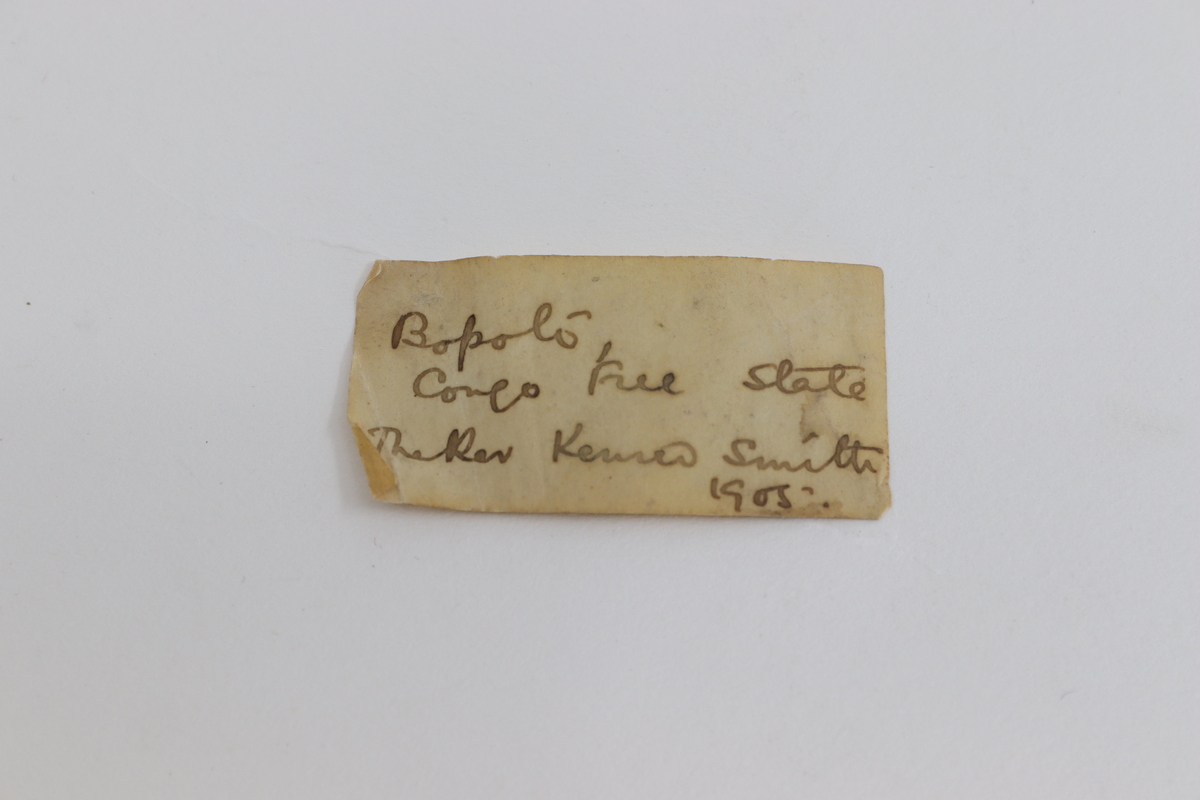 Bopoto,
Congo Free State
The Rev Kenred Smith
1905.